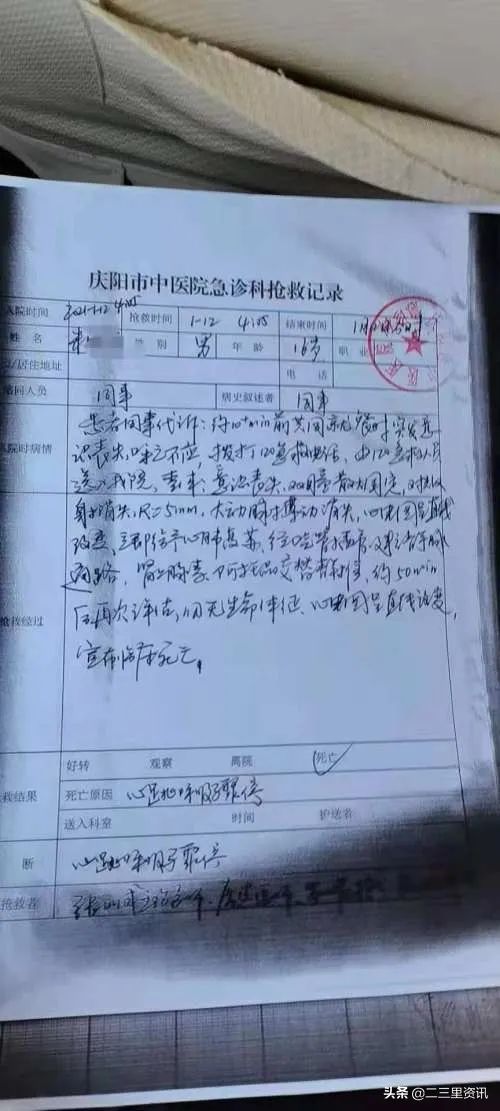 庆阳市中医院急诊科抢救记录
入院时间 2021-1-12 4:05 抢救时间 1-12 4:05 结束时间
姓名 性别 男 年龄 16岁 职业
居住地址 电话
陪同人员 同事 病史叙述者 同事
入院时病情
患者同事代诉:约10+min前其同事 时突发意
识丧失,呼之不应,拨打120急救电话,由120急救人员
送入我院,查体:意识丧失,双侧瞳孔散大固定,对光反
射消失,R≥5mm,大动脉搏动消失,心电图呈直线
改变,立即给予心肺复苏,经口气管插管,建立静脉
通路,肾上腺素、阿托品交替静推,约50min
后再次评估,仍无生命体征,心电图呈直线改变,
宣布临床死亡。
抢救经过
好转 观察 离院 死亡✓
抢救结果 死亡原因 心跳呼吸骤停
送入科室 时间 护送者
断 心跳呼吸骤停
抢救者
头条 @二三里资讯